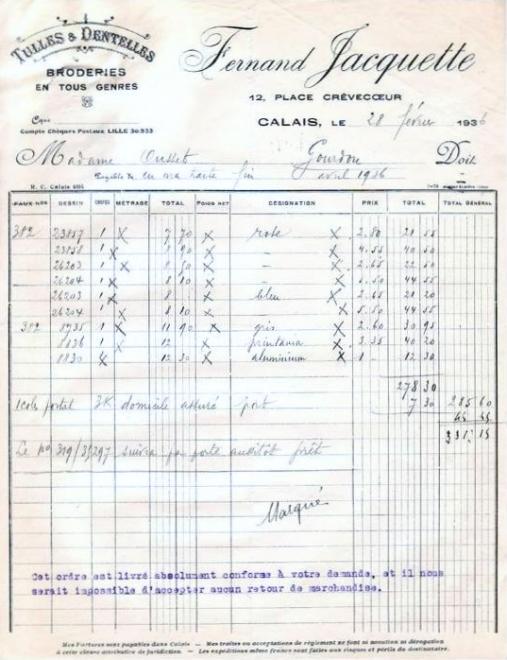 TULLES & DENTELLES
BRODERIES
EN TOUS GENRES
Fernand Jacquette
12, PLACE CRÈVECŒUR
CALAIS, LE 28 février 1936
Compte Chèques Postaux LILLE 30.933
Madame Gourdon Doit
fin avril 1936
R. C. Calais
DESSIN MÉTRAGE TOTAL POIDS NET DÉSIGNATION PRIX TOTAL TOTAL GÉNÉRAL
382 23857 1 X 7 70 X rose X 2.80 21 55
23858 1 X X - X 4.55 40 50
26203 1 X X - X 2.65 22 50
26204 1 X 8 10 X X 5.50 44 55
26203 1 X 8 X bleu X 2.65 21 20
26204 1 X 8 10 X X 5.50 44 55
382 8735 1 X 11 90 X gris X 2.60 30 95
8836 1 X 12 X printania X 3.35 40 20
8830 X 12 30 X aluminium X 1 12 30
278 30
1 colis postal 3K domicile assuré port 7 30 285 60
331 15
Le no 319/39297 suivra
Marqué
Cet ordre est livré absolument conforme à votre demande, et il nous
serait impossible d'accepter aucun retour de marchandise.
Mes Factures sont payables dans Calais — Mes traites ou acceptations de règlement ne font ni novation ni dérogation
à cette clause attributive de juridiction. — Les expéditions même franco sont faites aux risques et périls du destinataire.